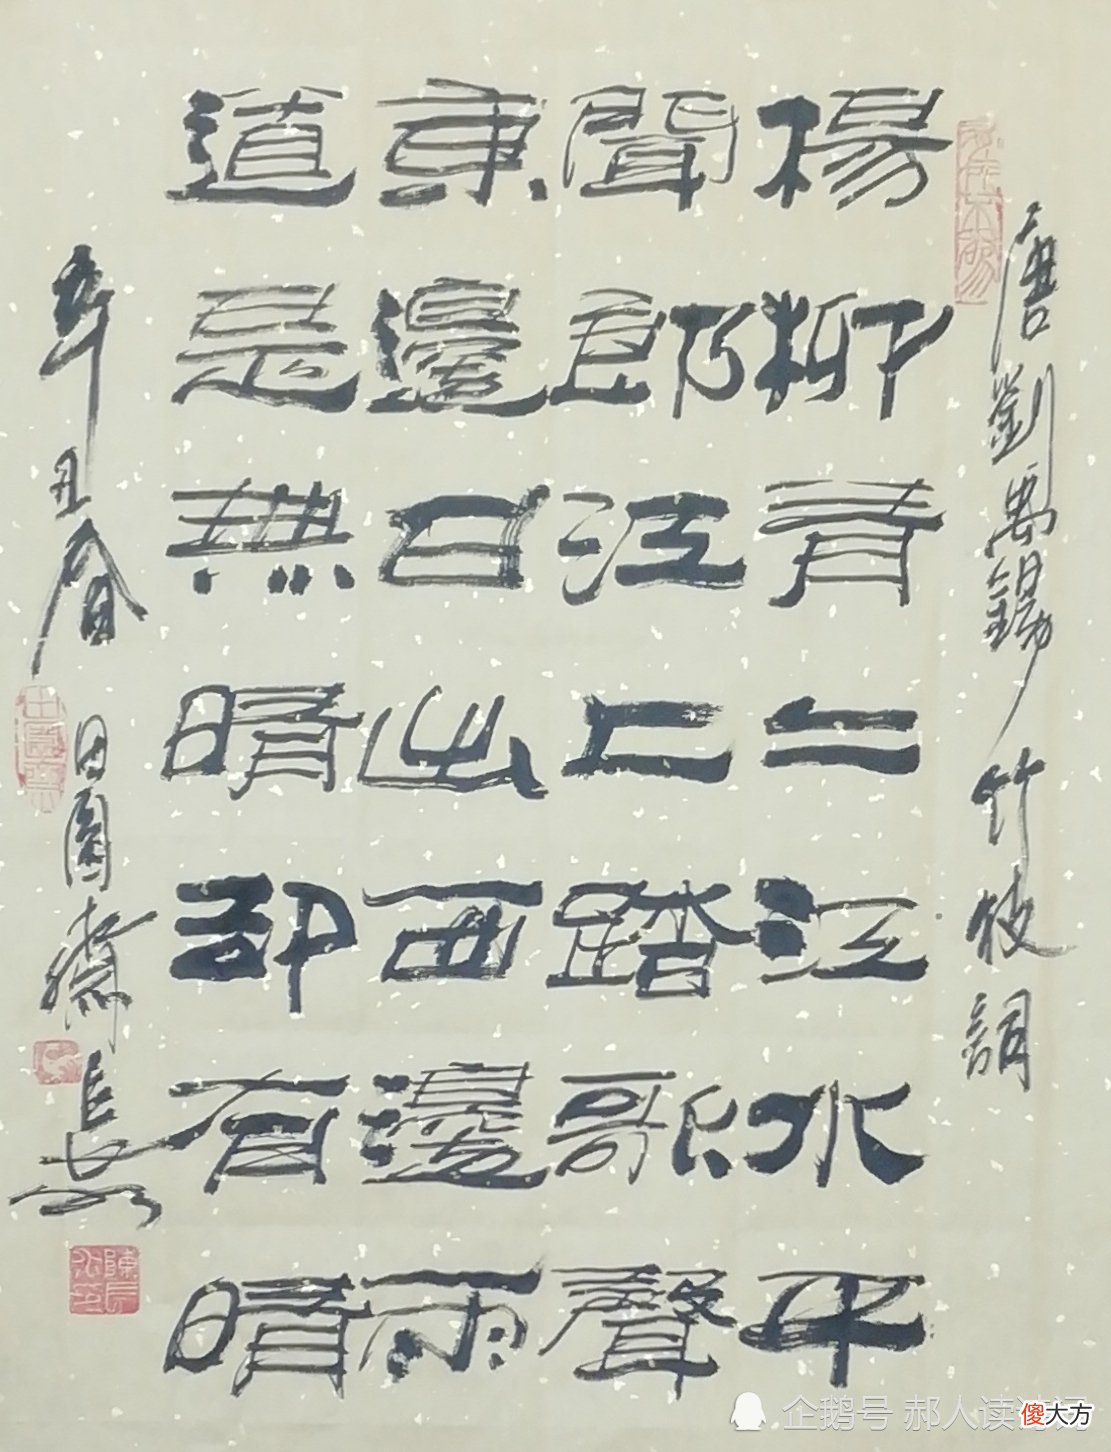 唐劉禹錫竹枝詞
楊柳青二江水平
聞郎江上踏歌聲
東邊日出西邊雨
道是無晴卻有晴
辛丑春田園齋
田園齋
企鹅号 郝人读诗词
傻大方